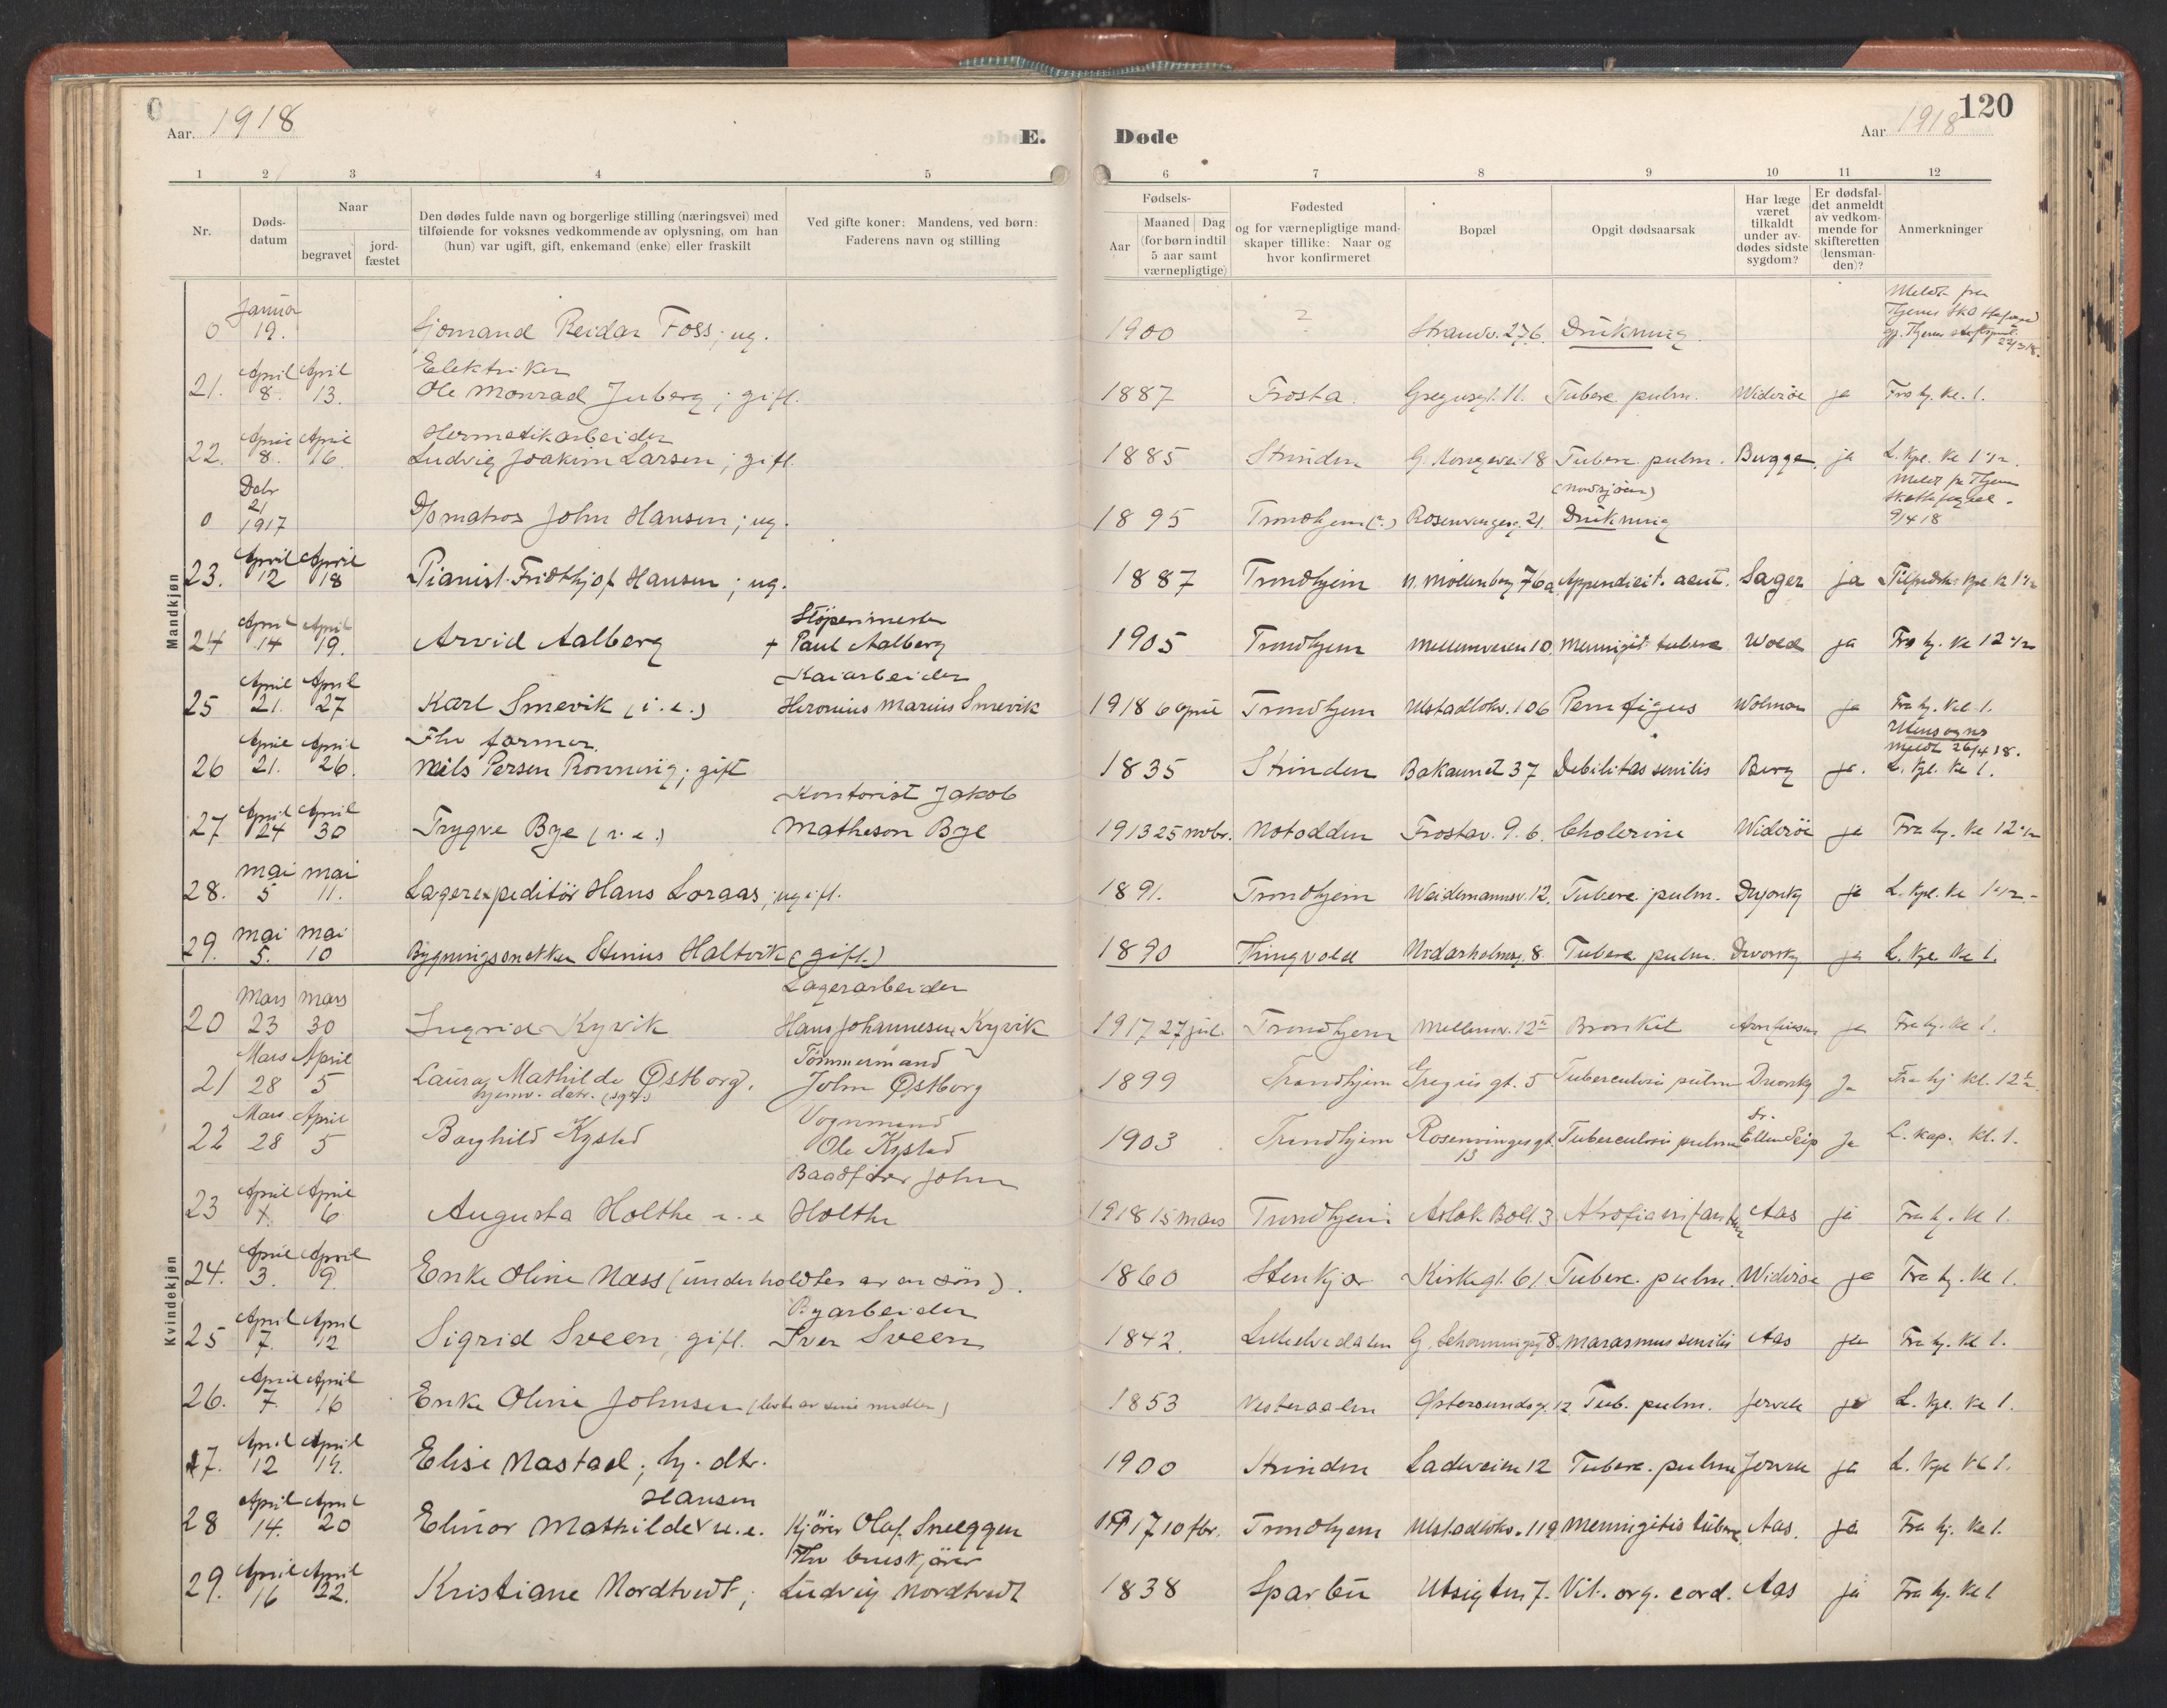 Aar. 1918
E.
Døde
Aar 1918
120
1 2 3 4 5 6 7 8 9 10 11 12
Nr.
Døds-
datum
Naar
begravet
jord-
fæstet
Den dødes fulde navn og borgerlige stilling (næringsvei) med
tilføiende for voksnes vedkommende av oplysning, om han
(hun) var ugift, gift, enkemand (enke) eller fraskilt
Ved gifte koner: Mandens, ved børn:
Faderens navn og stilling
Fødsels-
Aar
Maaned Dag
(for børn indtil
5 aar samt
værnepligtige)
Fødested
og for værnepligtige mand-
skaper tillike: Naar og
hvor konfirmeret
Bopæl
Opgit dødsaarsak
Har læge
været
tilkaldt
under av-
dødes sidste
sygdom?
Er dødsfal-
det anmeldt
av vedkom-
mende for
skifteretten
(lensman-
den)?
Anmerkninger
Mandkjøn
Januar Meldt fra
0 19. Sjømand Reidar Foss; ug. 1900 ? Strandv. 27b. Drukning 22/3 18.
April April Elektriker
21. 8. 13. Ole Monrad Juberg; gift. 1887 Frosta. Gregusgt. 11. Tuberc. pulm. Widerøe ja Fra hj. kl. 1.
April April Hermetikarbeider
22. 8. 16. Ludvig Joakim Larsen; gift. 1885 Strinden G. Kongevei 18 Tuberc. pulm. Bugge. ja L. Kpl. kl 1 1/2.
Debr (Nordsjøen) Meldt fr Thjem
21
0 1917 D/s matros John Hansen; ug. 1895 Trondhjem (?) Rosenvingesg. 21. Drukning 9/4 18
April April
23. 12 18 Pianist Fridthjof Hansen; ug. 1887 Trondhjem N. Møllenberg 76a Appendicit. acut. Sager ja kpl. kl 1 1/2
April April Støperimester
24 14 19. Arvid Aalberg + Paul Aalberg 1905 Trondhjem Mellemveien 10 Meningit. tuberc. Wold ja Fra hj. kl 12 1/2
April April Kaiarbeider
25 21. 27 Karl Smevik (i. e.) Heronius Marius Smevik 1918 6 april Trondhjem Ulstadløkv. 106 Pemfigus Wolman ja Fra hj. kl 1.
April April Fhv farmer. Utensogns meldt 26/4 18.
26 21. 26. Nils Persen Rønning; gift 1835 Strinden Bakaunet 37 Debilitas senilis Berg ja. L. kpl. kl 1.
April April Kontorist Jakob
27 24 30 Trygve Bye (i. e.) Matheson Bye 1913 25 novbr. Notodden Frostav. 9. b. Cholerine Widerøe ja Fra hj. kl 12 1/2
mai mai
28. 5 11. Lagerexpeditör Hans Loraas; ugift. 1891. Trondhjem Weidemannsv. 12. Tuberc. pulm. Dvorsky ja L. kpl. kl 1 1/2.
mai mai
29. 5. 10 Bygningssnekker Stenius Haltvik (gift) 1890 Thingvold Nidarholmsg. 8. Tuberc. pulm. Dvorsky ja L. kpl. kl 1.
Kvindekjøn
mars mars Lagerarbeider
20 23 30 Ingrid Kyrvik Hans Johannesen Kyrvik 1917 27 jul. Trondhjem Mellemv. 12 Bronkit ja Fra hj. kl 1.
Mars April Tømmermand
21 28 5 Laura Mathilde Østborg. John Østborg 1899 Trondhjem Gregus gt. 5 Tuberculosis pulm Dvorsky Ja Fra hj kl. 12 1/2.
hjemv. datr.
Mars April Vognmand dr.
22 28 5 Borghild Kystad Ole Kystad 1903 Trondhjem Rosenvinges gt. 13 Tuberculosis pulm Ellen Seip Ja L. kap. kl. 1.
April April Baadfører John
23 1. 6 Augusta Holthe u. e Holthe 1918 15 mars Trondhjem Aslak Bolt. 3 Atrofia infantum Aas ja Fra hj. kl 1.
April April
24. 3. 9. Enke Oline Næss (underholdtes av en søn). 1860 Stenkjær Kirkegt. 61 Tuberc. pulm. Widerøe ja Fra hj. kl 1.
April April Byarbeider
25 7. 12 Sigrid Sveen, gift. Iver Sveen 1842. Lilleelvedalen G. Schønningsg 8. Marasmus senilis Aas ja Fra hj. kl 1.
April April
26. 7. 16 Enke Oline Johnsen (levte av sine midler) 1853 Vesteraalen Østersundsg. 12. Tub. pulm. Jervell ja L. kpl. kl 1.
April April
27. 12 19. Elise Nastad; hj. dtr. 1900 Strinden Ladeveien 12 Tuberc. pulm Jervell ja L. kpl kl 1.
April April Hansen
28 14. 20 Elinor Mathilde u. e. Kjører Olaf Sneeggen 1917 10 fbr. Trondhjem Ulstadløkv. 119 Meningitis tuberc. Aas. ja Fra hj. kl 1.
April April Fhv bruskjører
29. 16 22. Kristiane Nordtvedt; Ludvig Nordtvedt 1838 Sparbu Utsigten 7. Vit. org. cord. Aas ja Fra hj. kl 1